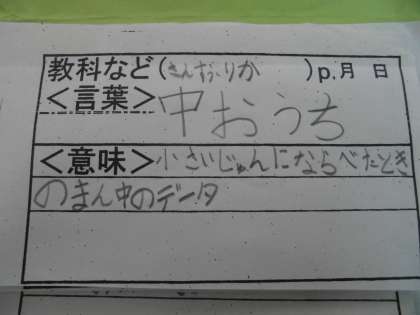 教科など(さんすう,りか )p.月 日
<言葉>中おうち
<意味>小さいじゅんにならべたとき
のまん中のデータ